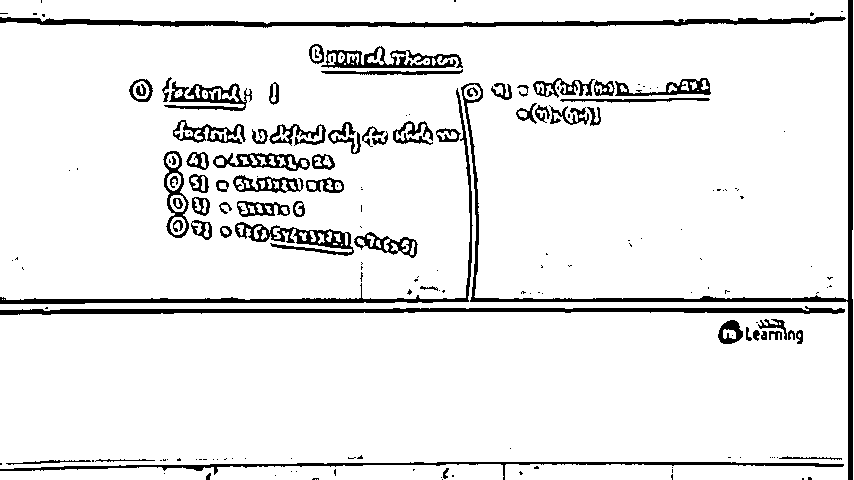 Binomial Theorem
① factorial : !
factorial is defined only for whole no.
① 4! = 4x3x2x1 = 24
② 5! = 5x4x3x2x1 = 120
③ 3! = 3x2x1 = 6
④ 7! = 7x6x5x4x3x2x1 = 7x6x5!
n! = n x (n-1) x (n-2) x ... x 2 x 1
= (n) x (n-1)!
Learning